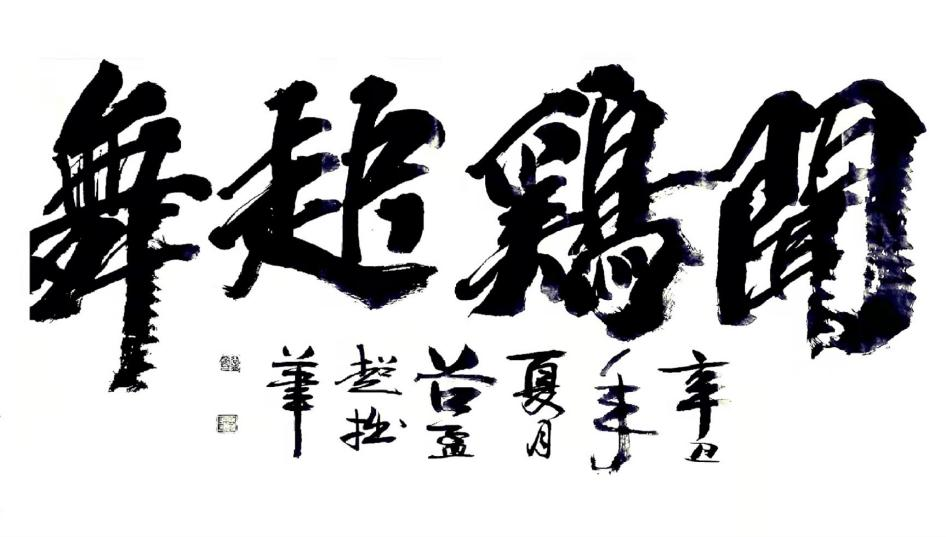 聞鷄起舞
辛丑
年
夏月
孟
超拙
筆